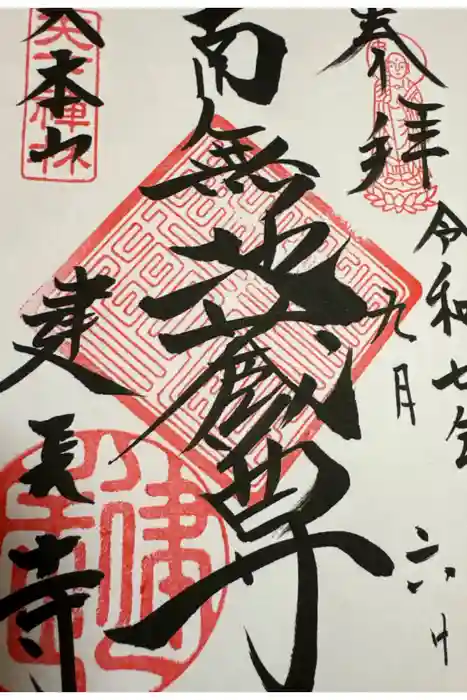 奉拝
令和七年
九月
六日
南無地蔵尊
大本山
建長寺
天下禅林